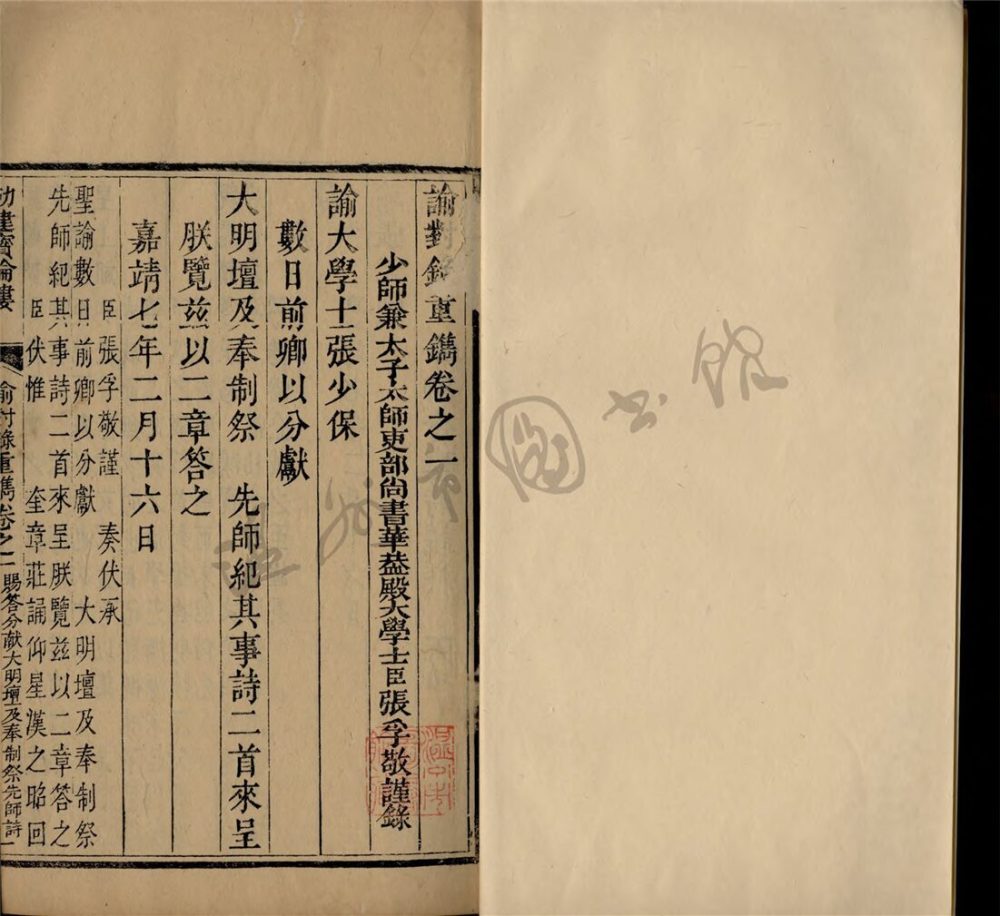 諭對錄重鐫卷之一
少師兼太子太師吏部尚書華蓋殿大學士臣張孚敬謹錄
諭大學士張少保
數日前卿以分獻
大明壇及奉制祭 先師紀其事詩二首來呈
朕覽茲以二章答之
嘉靖七年二月十六日
臣張孚敬謹 奏伏承
聖諭數日前卿以分獻 大明壇及奉制祭
先師紀其事詩二首來呈朕覽茲以二章答之
臣伏惟 奎章莊誦仰星漢之昭回
敕建寶綸樓
諭對錄重鐫卷之一
賜答分献大明壇及奉制祭先師詩一
溫州市圖書館